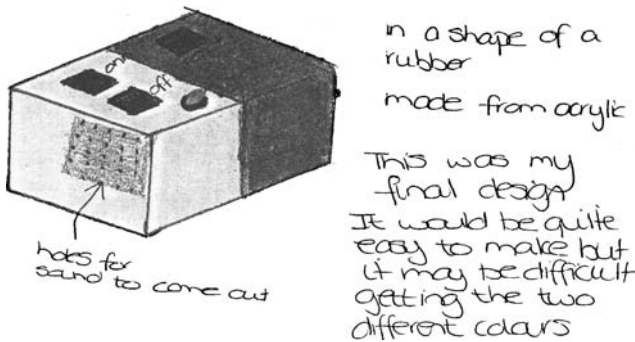 on
off
holes for
sound to come out
in a shape of a
rubber
made from acrylic
This was my
final design
It would be quite
easy to make but
it may be difficult
getting the two
different colours